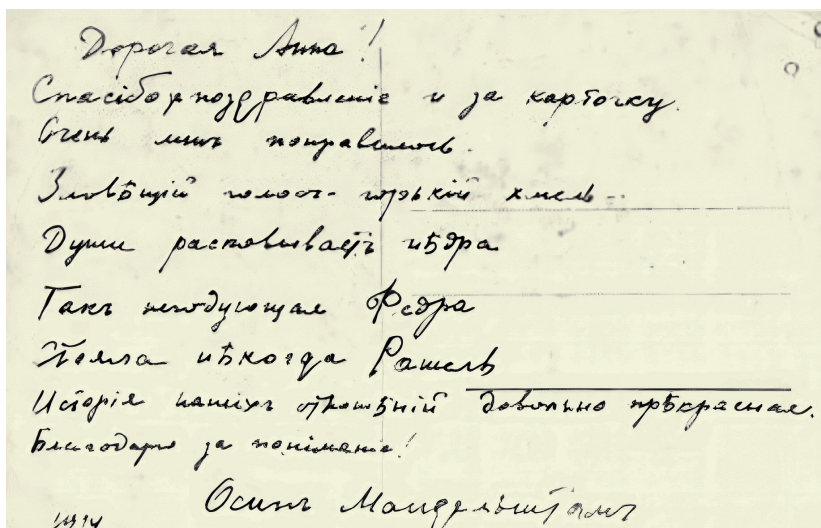 Дорогая Анна!
Спасібо у поздравленіе и за карточку.
Очень мнѣ понравилось.
Зловѣщій голосъ - горькій хмель -
Души расковываетъ нѣдра
Такъ негодующая Федра
Стояла нѣкогда Рашель
Исторія нашихъ отношѣній довольно прѣкрасная.
Благодарю за пониманіе!
Осипъ Мандельштамъ
1914